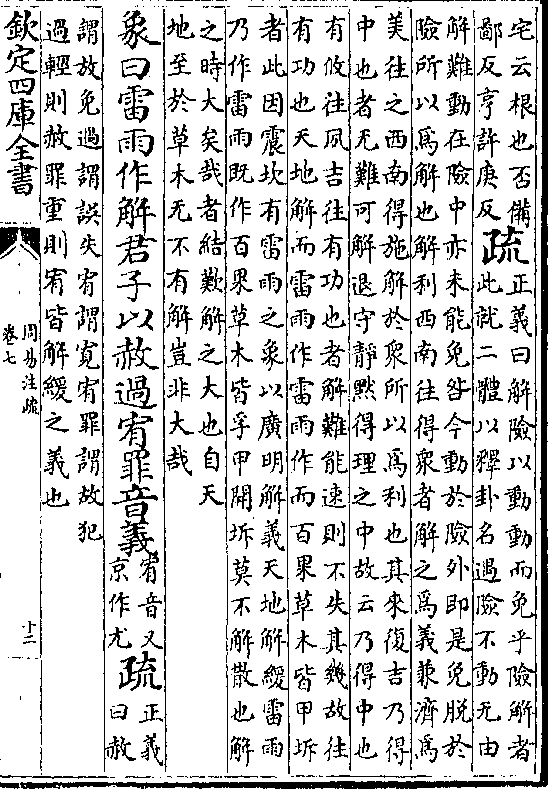 宅云根也否備
鄙反亨許庚反
疏
正義曰解險以動動而免乎險解者
此就二體以釋卦名遇險不動无由
解難動在險中亦未能免咎今動於險外即是免脫於
險所以爲解也解利西南往得衆者解之爲義兼濟爲
美往之西南得施解於衆所以爲利也其來復吉乃得
中也者无難可解退守靜黙得理之中故云乃得中也
有攸往夙吉往有功也者解難能速則不失其幾故往
有功也天地解而雷雨作雷雨作而百果草木皆甲坼
者此因震坎有雷雨之象以廣明解義天地解緩雷雨
乃作雷雨既作百果草木皆孚甲開坼莫不解散也解
之時大矣哉者結歎解之大也自天
地至於草木无不有解豈非大哉
象曰雷雨作解君子以赦過宥罪
音義
宥音又
京作尤
疏
正義
曰赦
謂放免過謂誤失宥謂寬宥罪謂故犯
過輕則赦罪重則宥皆解緩之義也
欽定四庫全書
周易注疏
卷七
十二